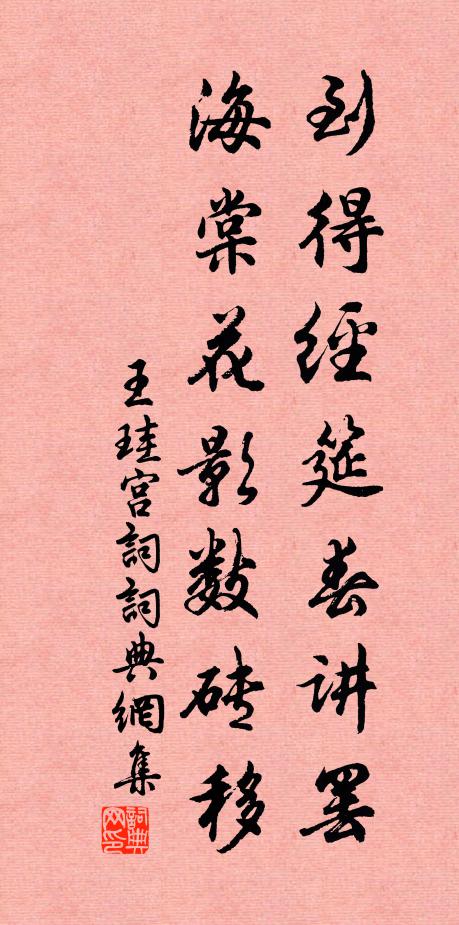 到得經筵春讲罢
海棠花影数砖移
王珪宫詞詞典網集
詞典网印